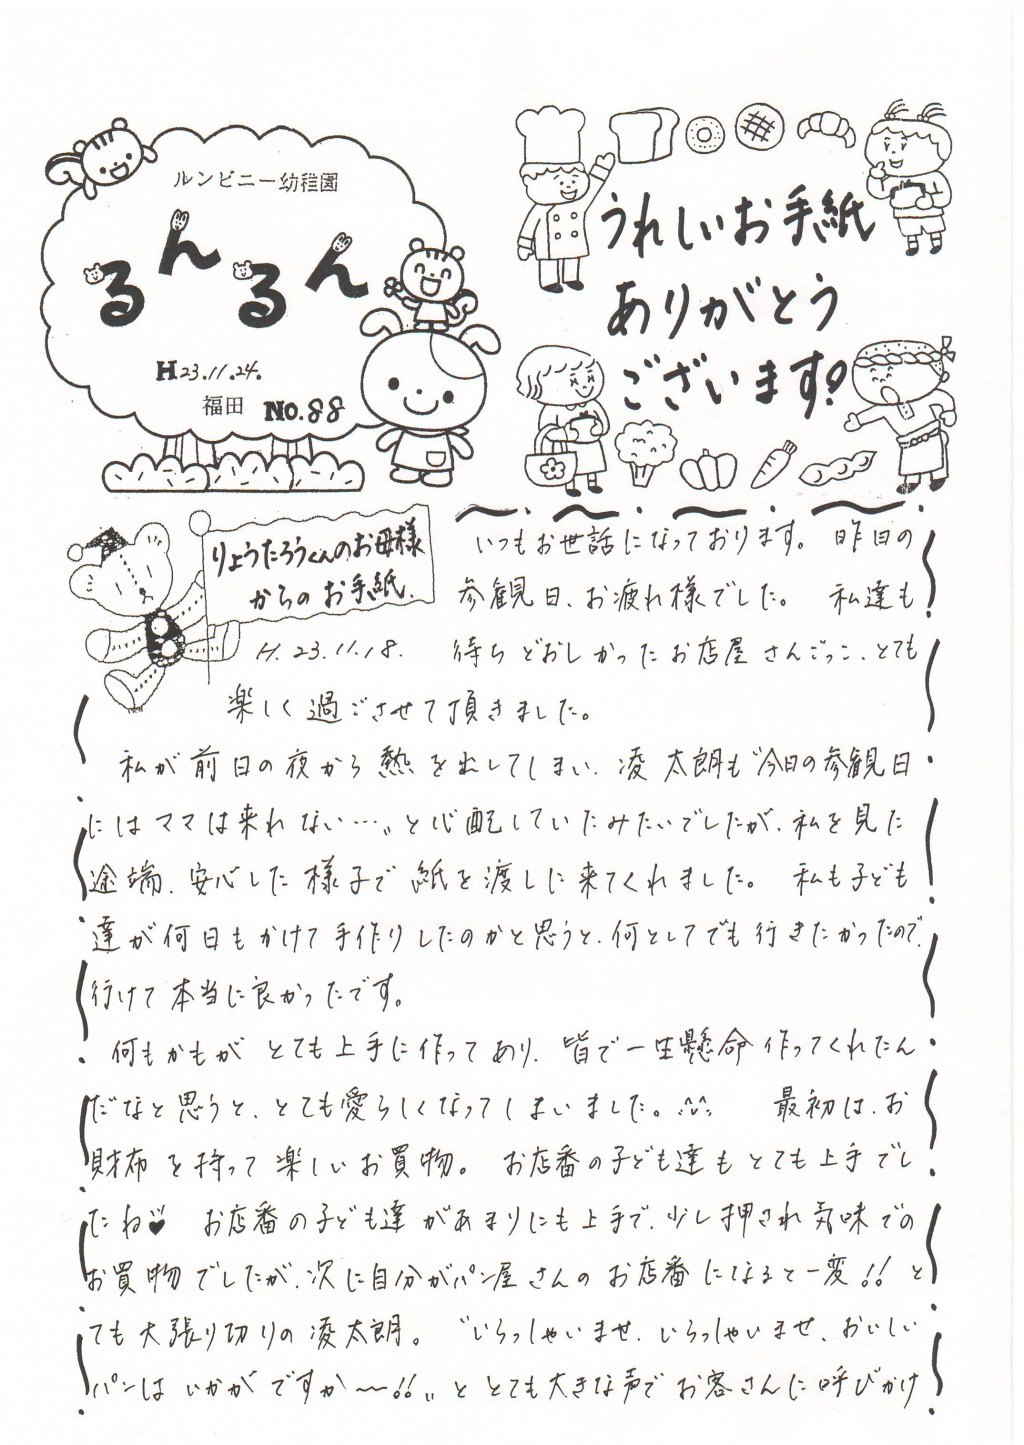 ルンビニー幼稚園
るんるん
H23.11.24.
福田 No.88
うれしいお手紙
ありがとう
ございます!
りょうたろうくんのお母様
からの お手紙.
H.23.11.18.
いつもお世話になっております。 昨日の
参観日、お疲れ様でした。 私達も
待ちどおしかったお店屋さんごっこ、とても
楽しく過ごさせて頂きました。
私が前日の夜から熱を出してしまい、凌太朗も“今日の参観日
にはママは来れない…〟と心配していたみたいでしたが、私を見た
途端、安心した様子で紙を渡しに来てくれました。 私も子ども
達が何日もかけて手作りしたのかと思うと、何としてでも行きたかったので、
行けて本当に良かったです。
何もかもがとても上手に作ってあり、皆で一生懸命作ってくれたん
だなと思うと、とても愛らしくなってしまいました。^^ 最初は、お
財布を持って楽しいお買物。 お店番の子ども達もとても上手でし
たね♥ お店番の子ども達があまりにも上手で、少し押され気味での
お買物でしたが、次に自分がパン屋さんのお店番になると一変!! と
ても大張り切りの凌太朗。 “いらっしゃいませ、いらっしゃいませ、おいしい
パンはいかがですか〜!!〟ととても大きな声でお客さんに呼びかけ